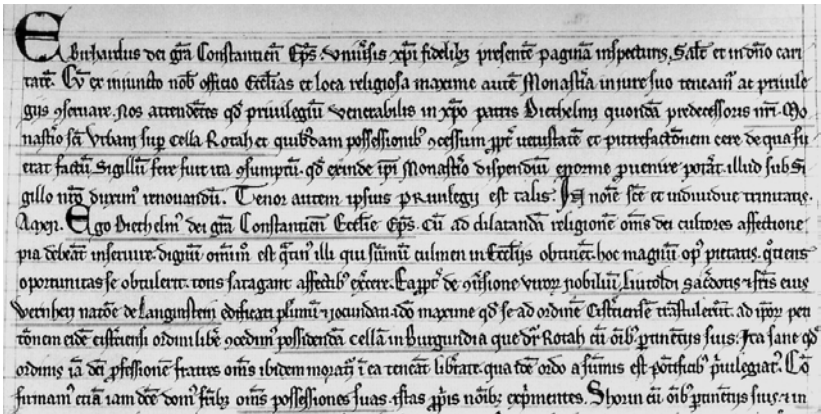 Ebirhardus dei grā Constantieñ Ep̄s. Vniũsis xp̄i fidelibꝫ presentē paginā inspecturis, Salt̄e et in dn̄o cari
tatē. Cū ex iniuncto nob̄ officio Ecc̄lias et loca religiosa maxime autē Monast̄ia in iure suo teneam̄ ac priuile
giis ꝯseruare. Nos attendētes qd̄ priuilegiū venerabilis in xp̄o patris Diethelmi quondā predecessoris nr̄i. Mo
nastio sc̄i Vrbani suꝑ cella Rotah et quibꝰdam possessionibꝰ ꝯcessum ꝓpt̄ uetustatē et putrefactōnem cere de qua fu
erat factū Sigillū fere fuit ita ꝯsumptū. qd̄ exinde ip̄i Monast̄io dispendiū enorme ꝓuenire potāt. illud sub Si
gillo nr̄o duximꝰ renouandū. Tenor autem ipsius priuilegii est talis. In noīe sc̄e et indiuidue trinitatis.
Amen. Ego Diethelmꝰ dei grā Constantieñ Ecc̄lie Ep̄s. Cū ad dilatandā religionē om̄s dei cultores affectione
pia debeāt inseruire. dignū om̄im̄ est qt̄inꝰ illi qui sūmū culmen in Ecc̄liis obtinēt. hoc magnū opꝰ pietatis. qͦtiens
oportunitas se obtulerit. totis satagant affectibꝰ exc̄ere. Ea ꝓpt̄ de ꝯuersione viroꝝ nobiliū, Liutoldi sac̄dotis ⁊ fr̄is eius
Wernheri natōe de Langinstein edificati plim̄ū ⁊ iocundati. idō maxime qd̄ se ad ordinē Cist̄ciensē tr̄astulerūt. ad ip̄oꝝ peti
tōnem eidē cist̄ciensi ordini libē ꝯcedimꝰ possidendā cellā in Burgundia que dr̄ Rotah cū oībꝰ ꝑtinētiis suis. Ita sane qd̄
ordinis iā dc̄i ꝓfessionē fratres om̄s ibidem morātˀ ī ea teneāt lib̄tate. qua idē ordo a sūmis est pōtificibꝰ pͥuilegiatꝰ. Cō
firmamꝰ etiā iam dc̄e domꝰ fr̄ibꝫ om̄s possessiones suas. istas ꝓpͥis noībꝫ exp̄mentes. Shorin cū oībꝰ ꝑtinētiis suis ⁊ in